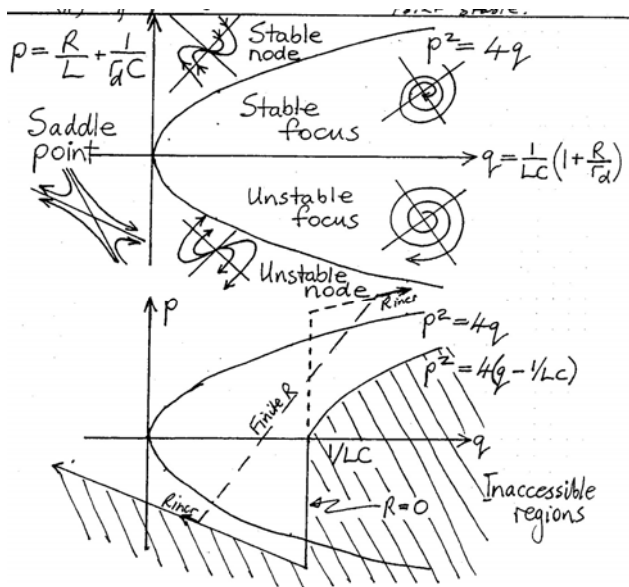 point stable.
p = R/L + 1/(r_d C)
Stable node
p² = 4q
Stable focus
Saddle point
q = 1/LC (1 + R/r_d)
Unstable focus
Unstable node
p
R incr
p² = 4q
p² = 4(q - 1/LC)
Finite R
1/LC
q
R incr
R = 0
Inaccessible regions